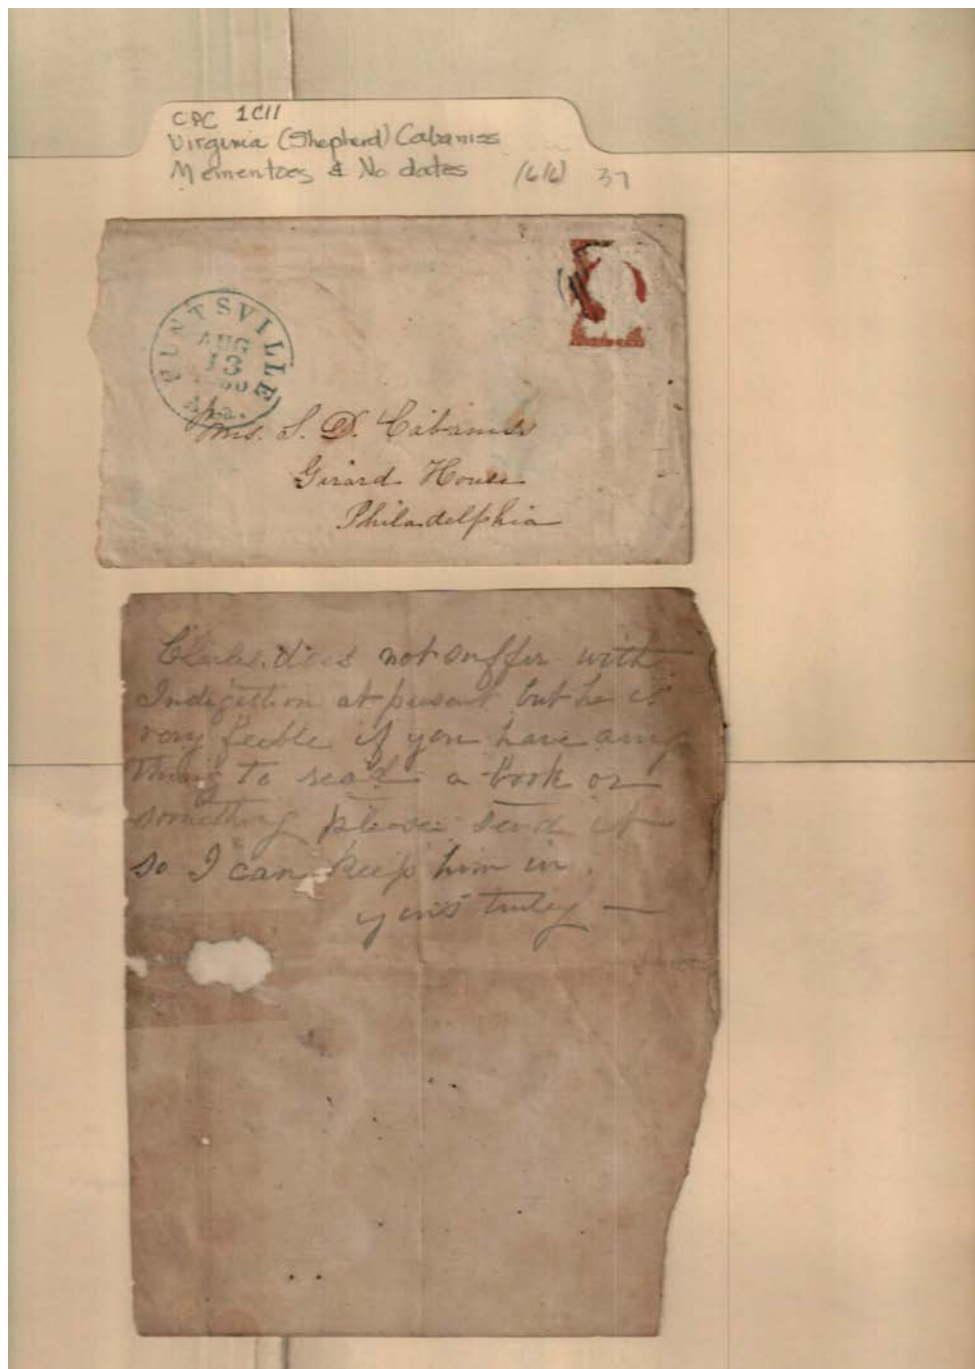 CPC 1C11
Virginia (Shepherd) Cabaniss
Mementoes & No dates (616) 37
HUNTSVILLE
AUG
13
Ala.
Mrs. S. D. Cabaniss
Girard House
Philadelphia
Charles. does not suffer with
Indigestion at present but he is
very feeble if you have any
thing to read a book or
something please send it
so I can keep him in.
yours truley —